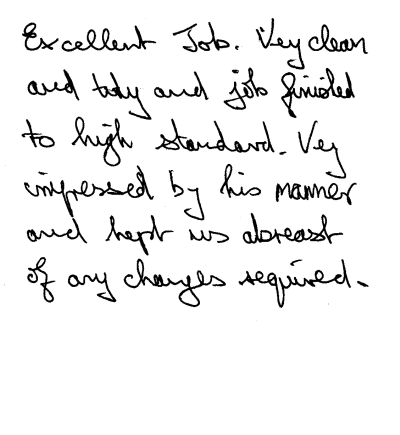 Excellent Job. Vey clean
and tidy and job finished
to high standard. Vey
impressed by his manner
and kept us abreast
of any changes required.